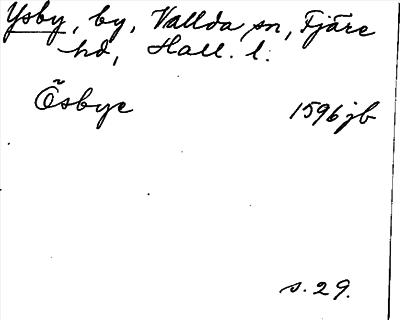 Ysby, by, Vallda sn, Fjäre
hd, Hall. l.
Õsbye 1596 jb
s. 29.